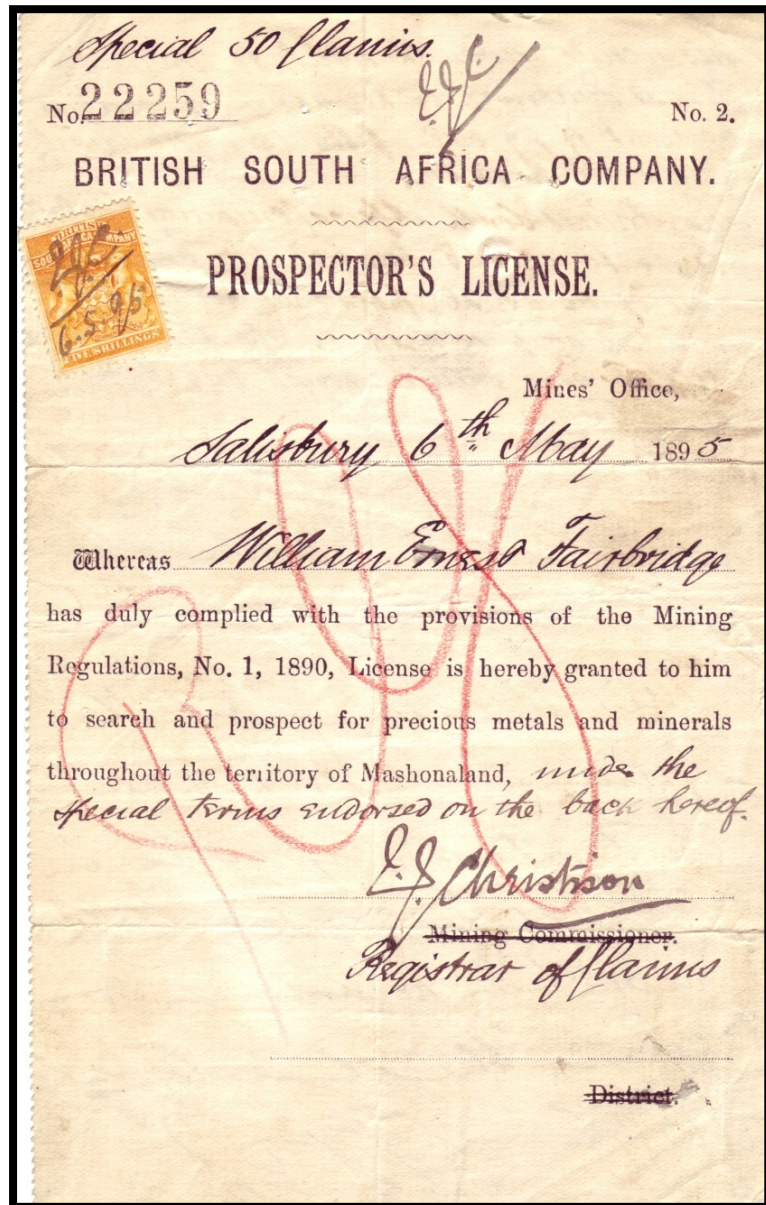 Special 50 Claims.
No. 22259
No. 2.
BRITISH SOUTH AFRICA COMPANY.
BRITISH
SOUTH AFRICA COMPANY
6.5.95
FIVE SHILLINGS
PROSPECTOR'S LICENSE.
Mines' Office,
Salisbury 6th May 1895
Whereas William Ernest Fairbridge
has duly complied with the provisions of the Mining
Regulations, No. 1, 1890, License is hereby granted to him
to search and prospect for precious metals and minerals
throughout the territory of Mashonaland, under the
special terms endorsed on the back hereof.
Christison
Mining Commissioner.
Registrar of Claims
District.